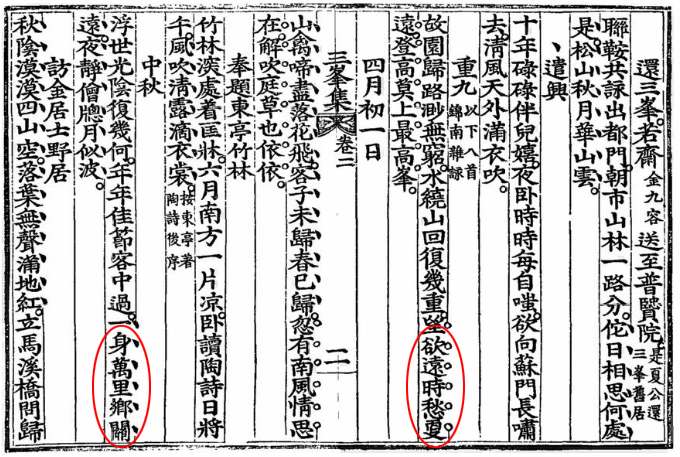 還三峯。若齋金九容送至普賢院。是夏公還三峯舊居
聯鞍共詠出都門。朝市山林一路分。佗日相思何處
是。松山秋月華山雲。
丶遣興
十年碌碌伴兒嬉。夜卧時時每自嗤。欲向蘇門長嘯
去。淸風天外滿衣吹。
重九以下八首錦南雜詠
故園歸路渺無窮。水繞山回復幾重。望欲遠時愁更
遠。登高莫上最高峯。
四月初一日
三峯集 卷二 二
山禽啼盡落花飛。客子未歸春已歸。忽有南風情思
在。解吹庭草也依依。
奉題東亭竹林
竹林深處着匡牀。六月南方一片凉。卧讀陶詩日將
午。風吹淸露滴衣裳。按東亭著陶詩後序
中秋
浮世光陰復幾何。年年佳節客中過。一身萬里鄕關
遠。夜靜僧牕月似波。
訪金居士野居
秋陰漠漠四山空。落葉無聲滿地紅。立馬溪橋問歸